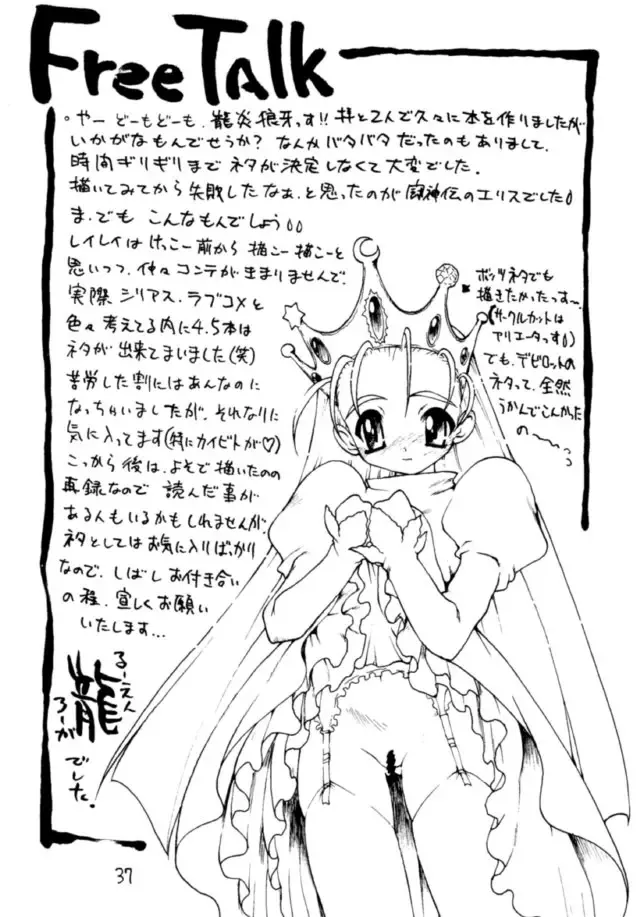 Free Talk
。やー どーもどーも、龍炎狼牙っす!! 井と2人で久々に本を作りましたが
いかがなもんでせうか? なんかバタバタだったのもありまして、
時間ギリギリまで ネタが決定しなくて大変でした。
描いてみてから失敗したなぁ、と思ったのが 闘神伝のエリスでした
ま、でも こんなもんでしょう
レイレイはけっこー前から描こー描こーと
思いつつ、仲々コンテがきまりませんで、
実際 シリアス、ラブコメと
色々考えてる内に4.5本は
ネタが出来てまいました(笑)
苦労した割にはあんなのに
なっちゃいましたが、それなりに
気に入ってます(特にカイビトが♡)
こっから後は、よそで描いたのの
再録なので 読んだ事が
ある人もいるかもしれませんが、
ネタとしてはお気に入りばっかり
なので、しばし お付き合い
の程、宜しくお願い
いたします…
ボッツネタでも
描きたかったっすー、
(サークルカットは
アリエータっす)
でも、デビロットの
ネタって、全然
うかんでこんかった
の〜〜っっ
るーえん
龍
ろーが
でした。
37